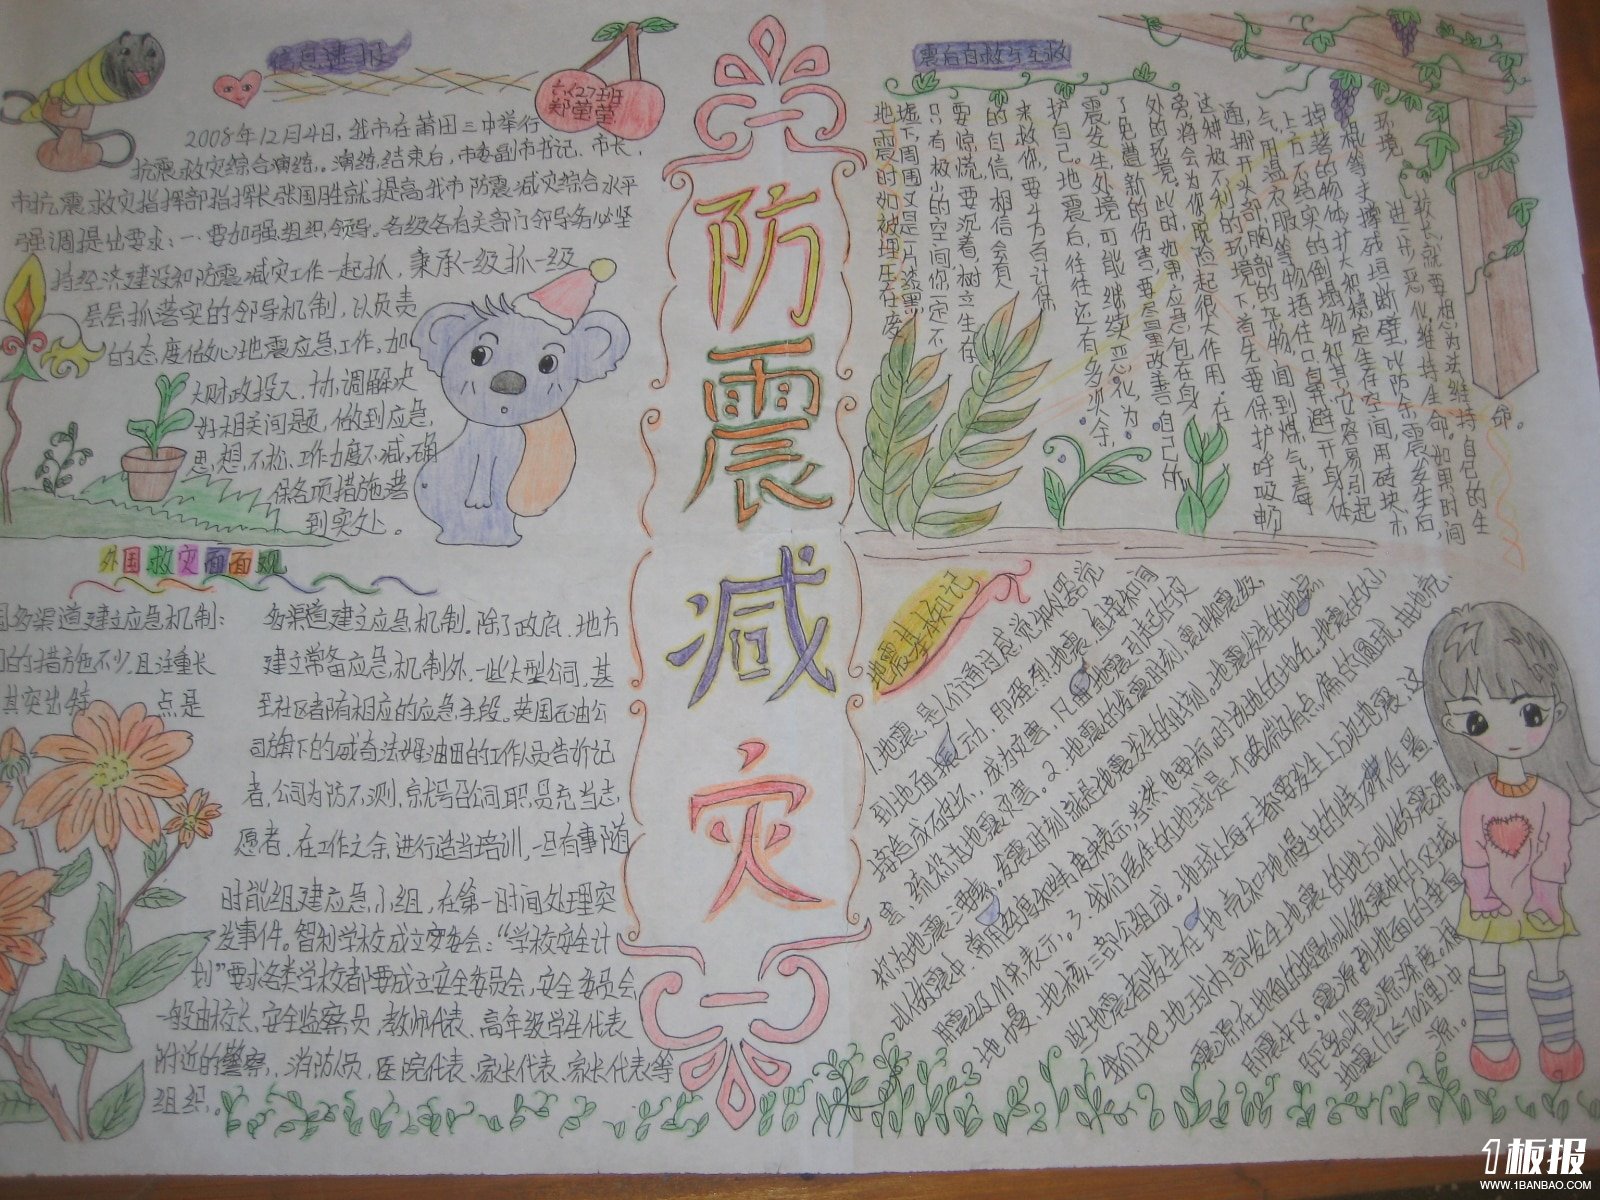 信息速报
六(2)班
郑莹莹
2008年12月4日,我市在莆田三中举行
抗震救灾综合演练。演练结束后,市委副市书记、市长、
市抗震救灾指挥部指挥长张国胜就提高我市防震减灾综合水平
强调提出要求:一、要加强组织领导。各级各有关部门领导务必坚
持经济建设和防震减灾工作一起抓,秉承一级抓一级
层层抓落实的领导机制,以负责
的态度做心地震应急工作,加
大财政投入、协调解决
好相关问题,做到应急,
思想不松、工作力度不减,确
保各项措施落
到实处。
外国救灾面面观
国多渠道建立应急机制:
的措施不少,且注重长
其突出特 点是
多渠道建立应急机制。除了政府、地方
建立常备应急机制外,一些大型公司,甚
至社区者随有相应的应急手段。英国石油公
司旗下的威奇法姆油田的工作人员告诉记
者,公司为防不测,京就号召公司职员充当志
愿者,在工作之余进行适当培训,一旦有事随
时能组建应急小组,在第一时间处理突
发事件。智利学校成立安委会:“学校安全计
划”要求各类学校都要成立安全委员会,安全委员会
一般由校长、安全监察员、教师代表、高年级学生代表
附近的警察、消防员、医院代表、家长代表、家长代表等
组织。
防震减灾
震后自救与互救
地震时如被埋压在废
墟下,周围又是一片漆黑,
只有极小的空间,你一定不
要惊慌,要沉着,树立生存
的自信,相信会有人
来救你,要千方百计保
护自己。地震后,往往还有多次余
震发生,处境可能继续恶化,为
了免遭新的伤害,要尽量改善自己所
处的环境。此时,如果应急包在身
旁,将会为你脱险起很大作用。在
这种极不利的环境下,首先要保护呼吸畅
通,挪开头部、胸部的杂物,闻到煤气、毒
气,用湿衣服等物捂住口、鼻;避开身体
上方不结实的倒塌物和其它容易引起
掉落的物体;扩大和稳定生存空间,用砖块、木
棍等支撑残垣断壁,以防余震发生后,
环境进一步恶化。维持生命。如果时间
较长,就要想办法维持自己的生
命。
地震基本知识
1.地震,是人们通过感觉和仪器觉
到地面振动。即强烈地震,直接和间
接造成破坏,成为灾害,凡由地震引起的灾
害,统称为地震灾害。2.地震的发震时刻、震中和震级,
称为地震三要素。发震时刻就是地震发生的时刻。地震发生的地点
以做震中,常用经度和纬度来表示,当然,也要标明时该地的地名。地震的大小
用震级M来表示。3.我们居住的地球是一个两极微有点偏的圆球,由地壳、
地幔、地核三部分组成。地球上每天都要发生上万次地震,这
些地震都发生在地壳和地幔中的特殊部位署,
我们把地球内部发生地震的地方叫做震源。
震源在地面的投影叫做震中的区域
即震中区。震源到地面的垂直
距离叫震源深度。根
地震位于70公里中
源。
1板报
WWW.1BANBAO.COM